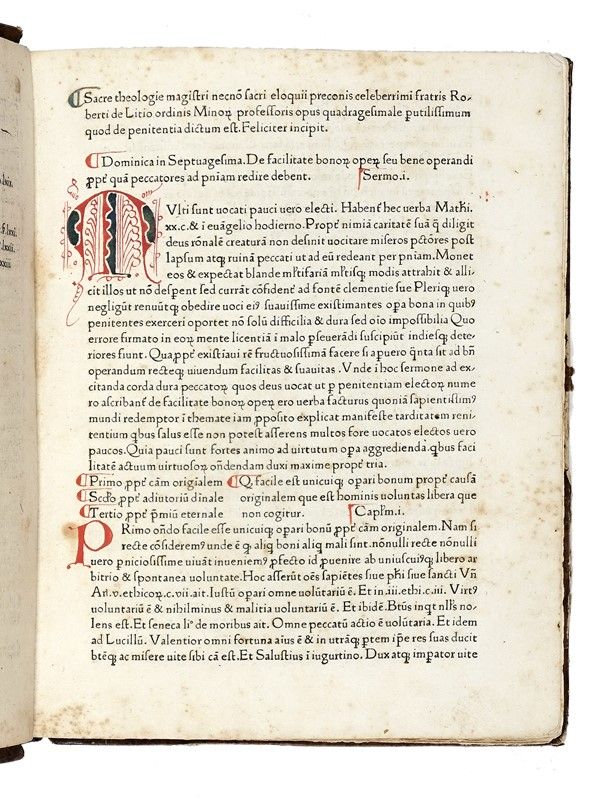 Sacre theologie magistri necnō sacri eloquii preconis celeberrimi fratris Ro-
berti de Litio ordinis Minoꝝ professoris opus quadragesimale putilissimum
quod de penitentia dictum est. Feliciter incipit.
Dominica in Septuagesima. De facilitate bonoꝝ opeꝝ seu bene operandi
ꝓpt᷑ quā peccatores ad pniam redire debent. Sermo.i.
MUlti sunt uocati pauci uero electi. Habent᷑ hec uerba Mathi.
xx.c. & ī euāgelio hodierno. Propt᷑ nimiā caritatē suā q̄ diligit
deus rōnalē creaturā non definit uocitare miseros pctōres post
lapsum atqꝫ ruinā peccati ut ad eū redeant per pniam. Monet
eos & expectat blande mr̄tisqꝫ modis attrahit & alli-
cit illos ut nō despent sed currāt cōfident᷑ ad fontē clementie sue Pleriqꝫ uero
negligūt renuūtqꝫ obedire uoci eiꝰ suauissime existimantes opa bona in quibꝰ
penitentes exerceri oportet nō solū difficilia & dura sed oīo impossibilia Quo
errore firmato in eoꝝ mente licentiā ī malo ꝑseuerādi suscipiūt indiesqꝫ dete-
riores fiunt. Quaꝓpt᷑ existīaui rē fructuosissimā facere si a puero q̄nta sit ad bn̄
operandum recteqꝫ uiuendum facilitas & suauitas. Vnde ī hoc sermone ad ex-
citanda corda dura peccatoꝝ quos deus uocat ut ꝑ penitentiam electoꝝ nume
ro ascribant᷑ de facilitate bonoꝝ opeꝝ ero uerba facturus quoniā sapientissimꝰ
mundi redemptor ī themate iam ꝓposito explicat manifeste tarditatem reni-
tentium qbus salus esse non potest asserens multos fore uocatos electos uero
paucos. Quia pauci sunt fortes animo ad uirtutum opa aggredienda. qbus faci
litatē actuum uirtuosoꝝ ondendam duxi maxime propt᷑ tria.
Primo ꝓpt᷑ cām origialem Q, facile est unicuiqꝫ opari bonum propt᷑ causā
Scdo ꝓpt᷑ adiutoriū diuinale originalem que est hominis uoluntas libera que
Tertio ꝓpt᷑ pmiū eternale non cogitur. Caplm.i.
PRimo ondo facile esse unicuiqꝫ opari bonū ꝓpt᷑ cām originalem. Nam si
recte cōsideremꝰ unde ē q, aliqꝫ boni aliqꝫ mali sint. nonulli recte nonulli
uero pniciosissime uiuāt inueniemꝰ ꝓfecto id puenire ab uniuscuiꝰqꝫ libero ar
bitrio & spontanea uoluntate. Hoc asserūt oēs sapiētes siue phi siue sancti Vn̄
Ari.v.ethicoꝝ.c.vii.ait. Iustū opari omne uolūtariū ē. Et in.iii.ethi.c.iii. Virtꝰ
uoluntariū ē & nihilminus & malitia uoluntariū ē. Et ibidē. Btūs inqt nll's no-
lens est. Et seneca li° de moribus ait. Omne peccatū actio ē uoluntaria. Et idem
ad Lucillū. Valentior omni fortuna aīus ē & in utrāqꝫ ptem ip̄e res suas ducit
btēqꝫ ac misere uite sibi cā est. Et Salustius ī iugurtino. Dux atqꝫ impator uite